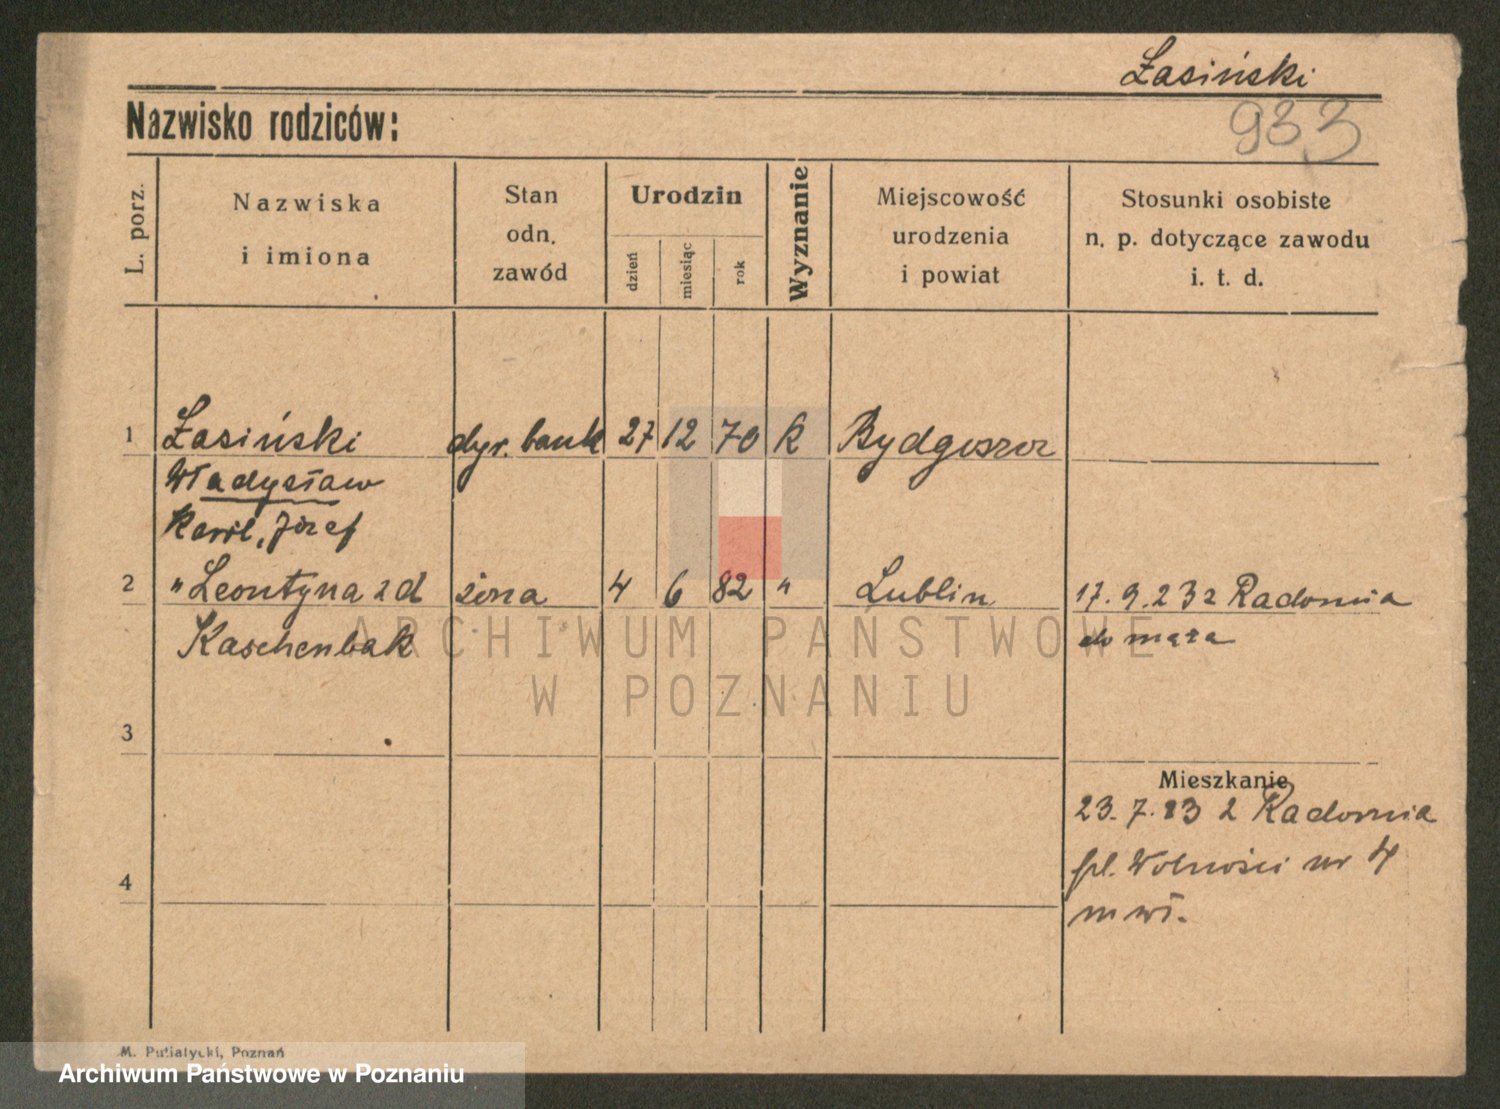 Łasiński
933
Nazwisko rodziców:
L. porz.
Nazwiska
i imiona
Stan
odn.
zawód
Urodzin
dzień
miesiąc
rok
Wyznanie
Miejscowość
urodzenia
i powiat
Stosunki osobiste
n. p. dotyczące zawodu
i. t. d.
1 Łasiński dyr. bank 27 12 70 k Bydgoszcz
Władysław
Karol, Józef
2 " Leontyna z d żona 4 6 82 " Lublin 17. 9. 23 z Radomia
Kaschenbak do męża
3
Mieszkanie
23. 7. 23 z Radomia
pl. Wolności nr 4
4
m wł.
ARCHIWUM PAŃSTWOWE
W POZNANIU
M. Putiatycki, Poznań
Archiwum Państwowe w Poznaniu